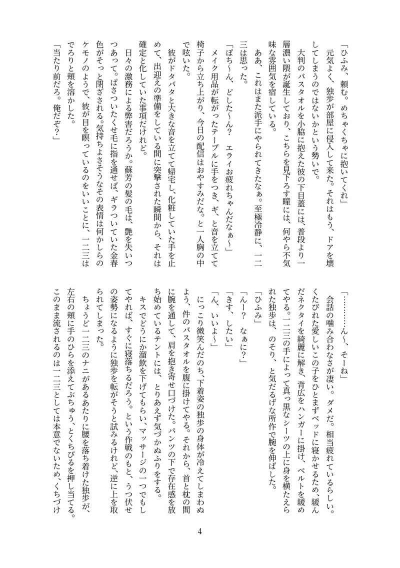 「ひふみ、頼む。めちゃくちゃに抱いてくれ」
元気よく、独歩が部屋に侵入して来た。それはもう、ドアを壊
してしまうのではないかという勢いで。
大判のバスタオルを小脇に抱えた彼の下目蓋には、普段より一
層濃い隈が誕生しており、こちらを見下ろす瞳には、何やら不気
味な雰囲気を宿している。
ああ、これはまた派手にやられてきたなぁ。至極冷静に、一二
三は思った。
「ぽち〜ん、どした〜ん？　エライお疲れちゃんだなぁ〜」
メイク用品が転がったテーブルに手をつき、ギ、と音を立てて
椅子から立ち上がり、今日の配信はおやすみだな。と一人胸の中
で呟いた。
彼がドタバタと大きな音を立てて帰宅し、化粧していた手を止
めて、出迎えの準備をしている間に突撃された瞬間から、それは
確定と化していた事項だけれど。
日々の激務による弊害だろうか。蘇芳の髪の毛は、艶を失いつ
つあって。ぱさついたくせ毛に指を通せば、ギラついていた金春
色がそっと閉ざされる。気持ちよさそうなその表情は何かしらの
ケモノのようで、彼が目を瞑っているのをいいことに、一二三は
でろりと頬を溶かした。
「当たり前だろ。俺だぞ？」
「…………ん〜、そーね」
会話の噛み合わなさが凄い。ダメだ。相当疲れているらしい。
くたびれた愛しいこの子をひとまずベッドに寝かせるため、緩ん
だネクタイを綺麗に解き、背広をハンガーに掛け、ベルトを緩め
てやる。一二三の手によって真っ黒なシーツの上に身を横たえら
れた独歩は、のそり、と気だるげな所作で腕を伸ばした。
「ひふみ」
「んー？　なぁに？」
「きす、したい」
「ん、いいよ〜」
にっこり微笑んだのち、下着姿の独歩の身体が冷えてしまわぬ
よう、件のバスタオルを腹に掛けてやる。それから、首と枕の間
に腕を通して、肩を抱き寄せ口づけた。パンツの下で存在感を放
ち始めているテントには、とりあえず気づかぬふりをする。
キスでどにか溜飲を下げてもらい、マッサージの一つでもし
てやれば、すぐに寝落ちるだろう。という作戦のもと、うつ伏せ
の姿勢になるように独歩を転がそうと試みるけれど、逆に上を取
られてしまった。
ちょうど一二三のナニがあるあたりに腰を落ち着けた独歩が、
左右の頬に手のひらを添えてぶちゅう、とくちびるを押し当てる。
このまま流されるのは一二三としては本意でないため、くちづけ
4